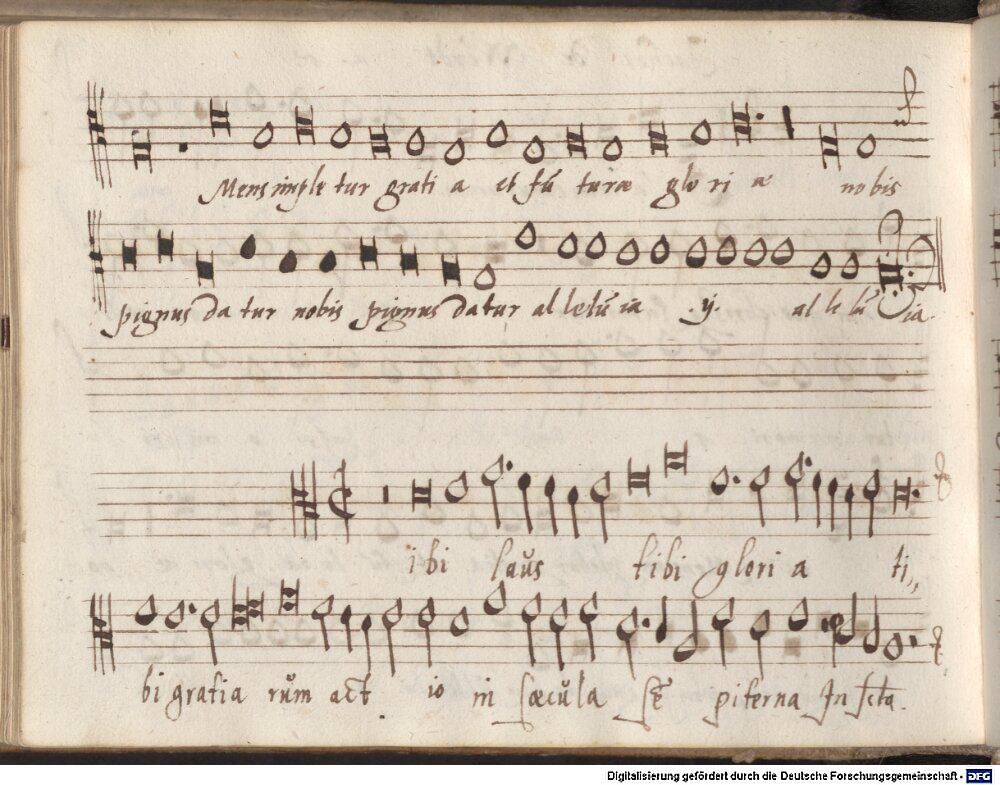 Mens imple tur grati a et fū turæ glo ri æ no bis
pignus da tur nobis pignus datur al lelū ia ij. al le lū ia.
ibi laŭs tibi glori a ti,,
bi gratia rŭm act io in sæcŭla sē piterna In scła.
Digitalisierung gefördert durch die Deutsche Forschungsgemeinschaft - DFG